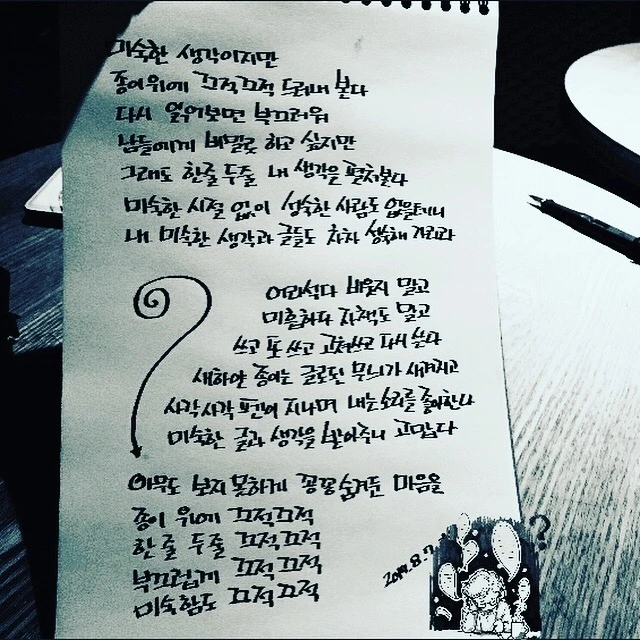 미숙한 생각이지만
종이위에 끄적끄적 드러내 본다
다시 읽어보면 부끄러워
남들에게 비밀로 하고 싶지만
그래도 한줄 두줄 내 생각을 펼쳐본다
미숙한 시절 없이 성숙한 사람도 없을테니
내 미숙한 생각과 글들도 차차 성숙해 지리라
어리석다 비웃지 말고
미흡하다 자책도 말고
쓰고 또 쓰고 고쳐쓰고 다시 쓴다
새하얀 종이는 글로된 무늬가 새겨지고
사각사각 펜이 지나며 내는소리를 좋아한다
미숙한 글과 생각을 받아주니 고맙다
아무도 보지 못하게 꽁꽁숨겨둔 마음을
종이 위에 끄적끄적
한 줄 두 줄 끄적끄적
부끄럽게 끄적끄적
미숙함도 끄적끄적
?